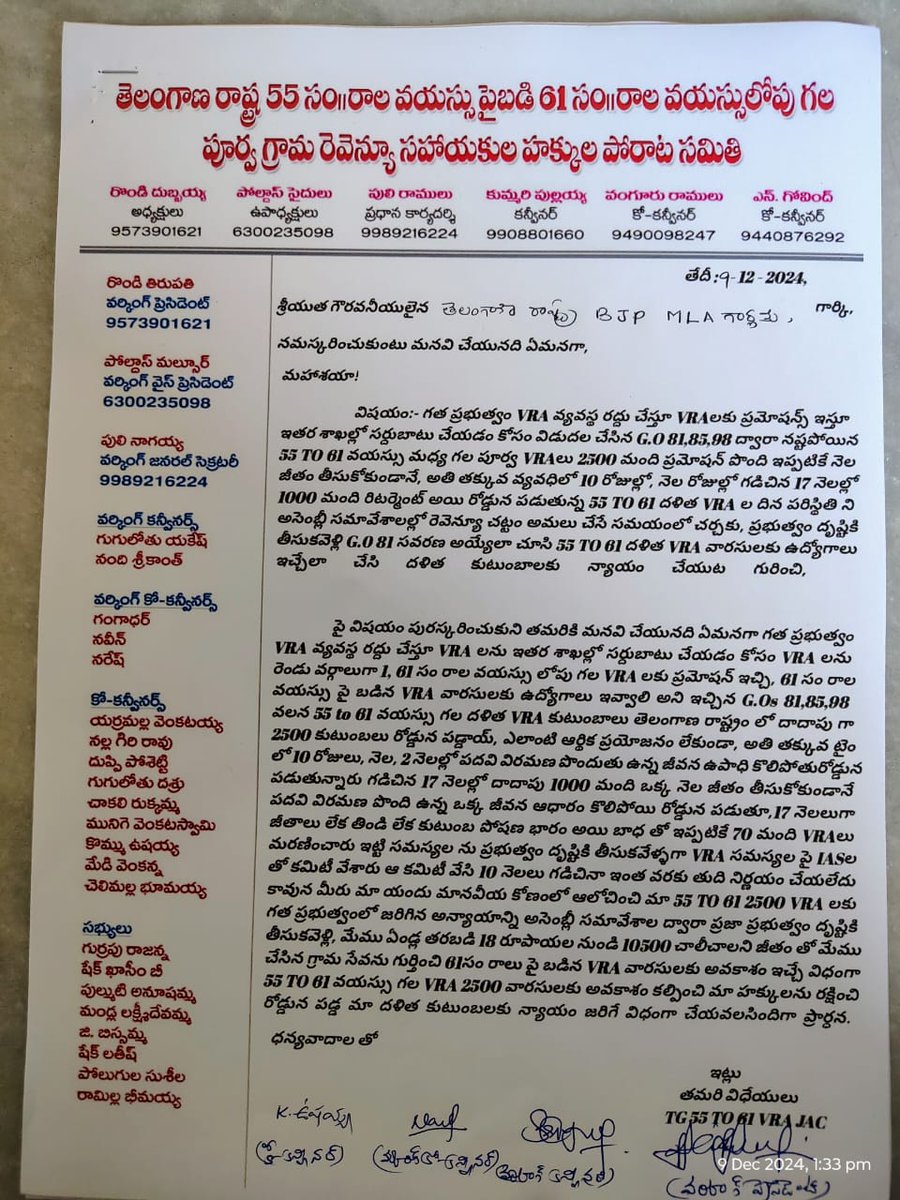 తెలంగాణ రాష్ట్ర 55 సం॥రాల వయస్సు పైబడి 61 సం॥రాల వయస్సులోపు గల
పూర్వ గ్రామ రెవెన్యూ సహాయకుల హక్కుల పోరాట సమితి
రొండి దుబ్బయ్య
అధ్యక్షులు
9573901621
పోల్దాస్ సైదులు
ఉపాధ్యక్షులు
6300235098
పులి రాములు
ప్రధాన కార్యదర్శి
9989216224
కుమ్మరి పుల్లయ్య
కన్వీనర్
9908801660
వంగూరు రాములు
కో-కన్వీనర్
9490098247
ఎస్. గోవింద్
కో-కన్వీనర్
9440876292
రొండి తిరుపతి
వర్కింగ్ ప్రెసిడెంట్
9573901621
పోల్దాస్ మల్సూర్
వర్కింగ్ వైస్ ప్రెసిడెంట్
6300235098
పులి నాగయ్య
వర్కింగ్ జనరల్ సెక్రటరీ
9989216224
వర్కింగ్ కన్వీనర్స్
గుగులోతు యకేష్
నంది శ్రీకాంత్
వర్కింగ్ కో-కన్వీనర్స్
గంగాధర్
నవీన్
నరేష్
కో-కన్వీనర్స్
యర్రమల్ల వెంకటయ్య
నల్ల గిరి రావు
దుప్పి పోశెట్టి
గుగులోతు దశ్రు
చాకలి రుక్కమ్మ
మునిగె వెంకటస్వామి
కొమ్ము ఉషయ్య
మేడి వెంకన్న
చెలిమల్ల భూమయ్య
సభ్యులు
గుర్రపు రాజన్న
షేక్ ఖాసీం బీ
పుల్ముటి అనూషమ్మ
మండ్ల లక్ష్మీదేవమ్మ
జి. బిస్సమ్మ
షేక్ లతీష్
పోలుగుల సుశీల
రామిల్ల భీమయ్య
తేదీ :9-12-2024,
శ్రీయుత గౌరవనీయులైన తెలంగాణ రాష్ట్ర BJP MLA గార్లకు, గార్కి,
నమస్కరించుకుంటు మనవి చేయునది ఏమనగా,
మహాశయా!
విషయం:- గత ప్రభుత్వం VRA వ్యవస్థ రద్దు చేస్తూ VRAలకు ప్రమోషన్స్ ఇస్తూ
ఇతర శాఖల్లో సర్దుబాటు చేయడం కోసం విడుదల చేసిన G.O 81,85,98 ద్వారా నష్టపోయిన
55 TO 61 వయస్సు మధ్య గల పూర్వ VRAలు 2500 మంది ప్రమోషన్ పొంది ఇప్పటికే నెల
జీతం తీసుకోకుండానే, అతి తక్కువ వ్యవధిలో 10 రోజుల్లో, నెల రోజుల్లో గడిచిన 17 నెలల్లో
1000 మంది రిటర్మెంట్ అయి రోడ్డున పడుతున్న 55 TO 61 దళిత VRA ల దిన పరిస్థితి ని
అసెంబ్లీ సమావేశాలల్లో రెవెన్యూ చట్టం అమలు చేసే సమయంలో చర్చకు, ప్రభుత్వం దృష్టికి
తీసుకవెళ్లి G.O 81 సవరణ అయ్యేలా చూసి 55 TO 61 దళిత VRA వారసులకు ఉద్యోగాలు
ఇచ్చేలా చేసి దళిత కుటుంబాలకు న్యాయం చేయుట గురించి,
పై విషయం పురస్కరించుకుని తమరికి మనవి చేయునది ఏమనగా గత ప్రభుత్వం
VRA వ్యవస్థ రద్దు చేస్తూ VRA లను ఇతర శాఖల్లో సర్దుబాటు చేయడం కోసం VRA లను
రెండు వర్గాలుగా 1, 61 సం రాల వయస్సు లోపు గల VRA లకు ప్రమోషన్ ఇచ్చి, 61 సం రాల
వయస్సు పై బడిన VRA వారసులకు ఉద్యోగాలు ఇవ్వాలి అని ఇచ్చిన G.Os 81,85,98
వలన 55 to 61 వయస్సు గల దళిత VRA కుటుంబాలు తెలంగాణ రాష్ట్రం లో దాదాపు గా
2500 కుటుంబలు రోడ్డున పడ్డాయ్, ఎలాంటి ఆర్థిక ప్రయోజనం లేకుండా, అతి తక్కువ టైం
లో 10 రోజులు, నెల, 2 నెలల్లో పదవి విరమణ పొందుతు ఉన్న జీవన ఉపాధి కొలిపోతురోడ్డున
పడుతున్నారు గడిచిన 17 నెలల్లో దాదాపు 1000 మంది ఒక్క నెల జీతం తీసుకోకుండానే
పదవి విరమణ పొంది ఉన్న ఒక్క జీవన ఆధారం కొలిపోయి రోడ్డున పడుతూ,17 నెలలుగా
జీతాలు లేక తిండి లేక కుటుంబ పోషణ భారం అయి బాధ తో ఇప్పటికే 70 మంది VRAలు
మరణించారు ఇట్టి సమస్యల ను ప్రభుత్వం దృష్టికి తీసుకవేళ్ళగా VRA సమస్యల పై IASల
తో కమిటీ వేశారు ఆ కమిటీ వేసి 10 నెలలు గడిచినా ఇంత వరకు తుది నిర్ణయం చేయలేదు
కావున మీరు మా యందు మానవీయ కోణంలో ఆలోచించి మా 55 TO 61 2500 VRA లకు
గత ప్రభుత్వంలో జరిగిన అన్యాయాన్ని అసెంబ్లీ సమావేశాల ద్వారా ప్రజా ప్రభుత్వం దృష్టికి
తీసుకవెళ్లి, మేము ఏండ్ల తరబడి 18 రూపాయల నుండి 10500 చాలీచాలని జీతం తో మేము
చేసిన గ్రామ సేవను గుర్తించి 61సం రాలు పై బడిన VRA వారసులకు అవకాశం ఇచ్చే విధంగా
55 TO 61 వయస్సు గల VRA 2500 వారసులకు అవకాశం కల్పించి మా హక్కులను రక్షించి
రోడ్డున పడ్డ మా దళిత కుటుంబలకు న్యాయం జరిగే విధంగా చేయవలసిందిగా ప్రార్థన.
ధన్యవాదాల తో
ఇట్లు
తమరి విధేయులు
TG 55 TO 61 VRA JAC
K. ఉషయ్య
(కో కన్వినర్)
(వర్కింగ్ కో-కన్వీనర్)
9 Dec 2024, 1:33 pm